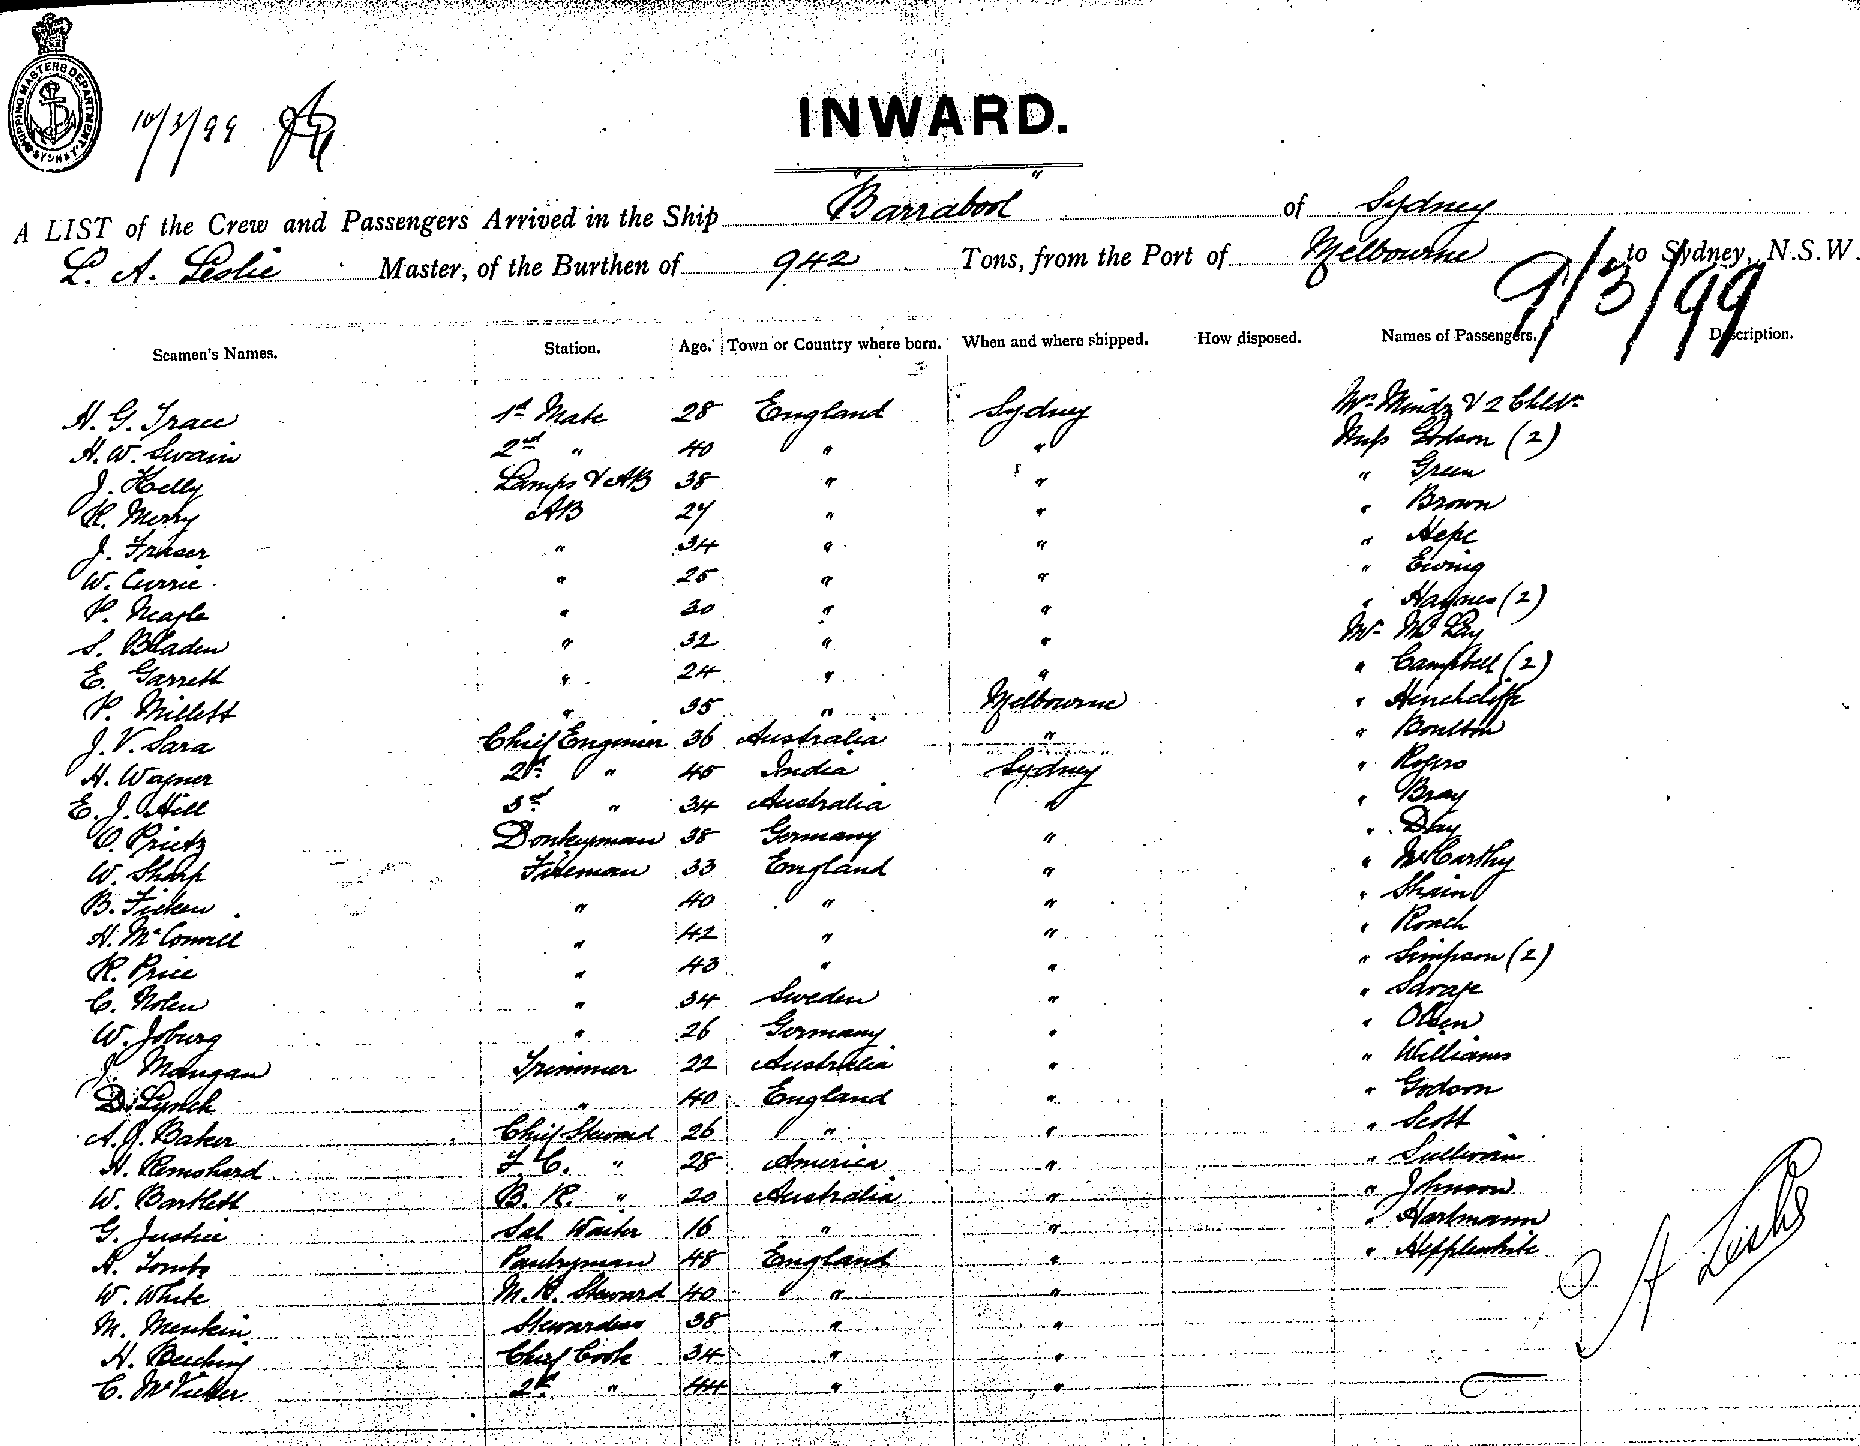 SHIPPING MASTERS DEPARTMENT. SYDNEY.
10/3/99
INWARD.
A LIST of the Crew and Passengers Arrived in the Ship "Barrabool" of Sydney
L. A. Leslie Master, of the Burthen of 942 Tons, from the Port of Melbourne to Sydney, N.S.W.
9/3/99
Seamen's Names. Station. Age. Town or Country where born. When and where shipped. How disposed. Names of Passengers. Description.
H. G. Trace 1st Mate 28 England Sydney Mrs & 2 Chldn
H. W. Swain 2nd " 40 " " Miss Godson (2)
J. Kelly Lamps & AB 38 " " " Green
R. Merry AB 27 " " " Brown
J. Fraser " 34 " " "
W. Currie " 25 " " " Ewing
P. Neagle " 30 " " " Haynes (2)
S. Bladen " 32 " " Mr McKay
E. Garrett " 24 " " " Campbell (2)
P. Millett " 35 " Melbourne " Henchcliffe
J. V. Sara Chief Engineer 36 Australia " " Boulton
H. Wagner 2nd " 45 India Sydney " Rogers
E. J. Hill 3rd " 34 Australia " " Bray
O. Prietz Donkeyman 38 Germany " " Day
W. Sharp Fireman 33 England " " McCarthy
B. Ficken " 40 " " " Shain
H. McConnell " 42 " " " Roach
R. Price " 43 " " " Simpson (2)
C. Nolen " 34 Sweden " " Savage
W. Joburg " 26 Germany " " Olsen
J. Mangan Trimmer 22 Australia " " Williams
D. Lynch " 40 England " " Godson
A. J. Baker Chief Steward 26 " " " Scott
H. Remshard F C. " 28 America " " Sullivan
W. Bartlett B. R. " 20 Australia " " Johnson
G. Justice Sal Waiter 16 " " " Hartmann
A. Tombs Pantryman 48 England " " Hepplewhite
W. White M. R. Steward 40 " "
M. Menkin Stewardess 38 " "
H. Beeching Chief Cook 34 " "
C. McVicker 2nd " 44 " "
L A Leslie